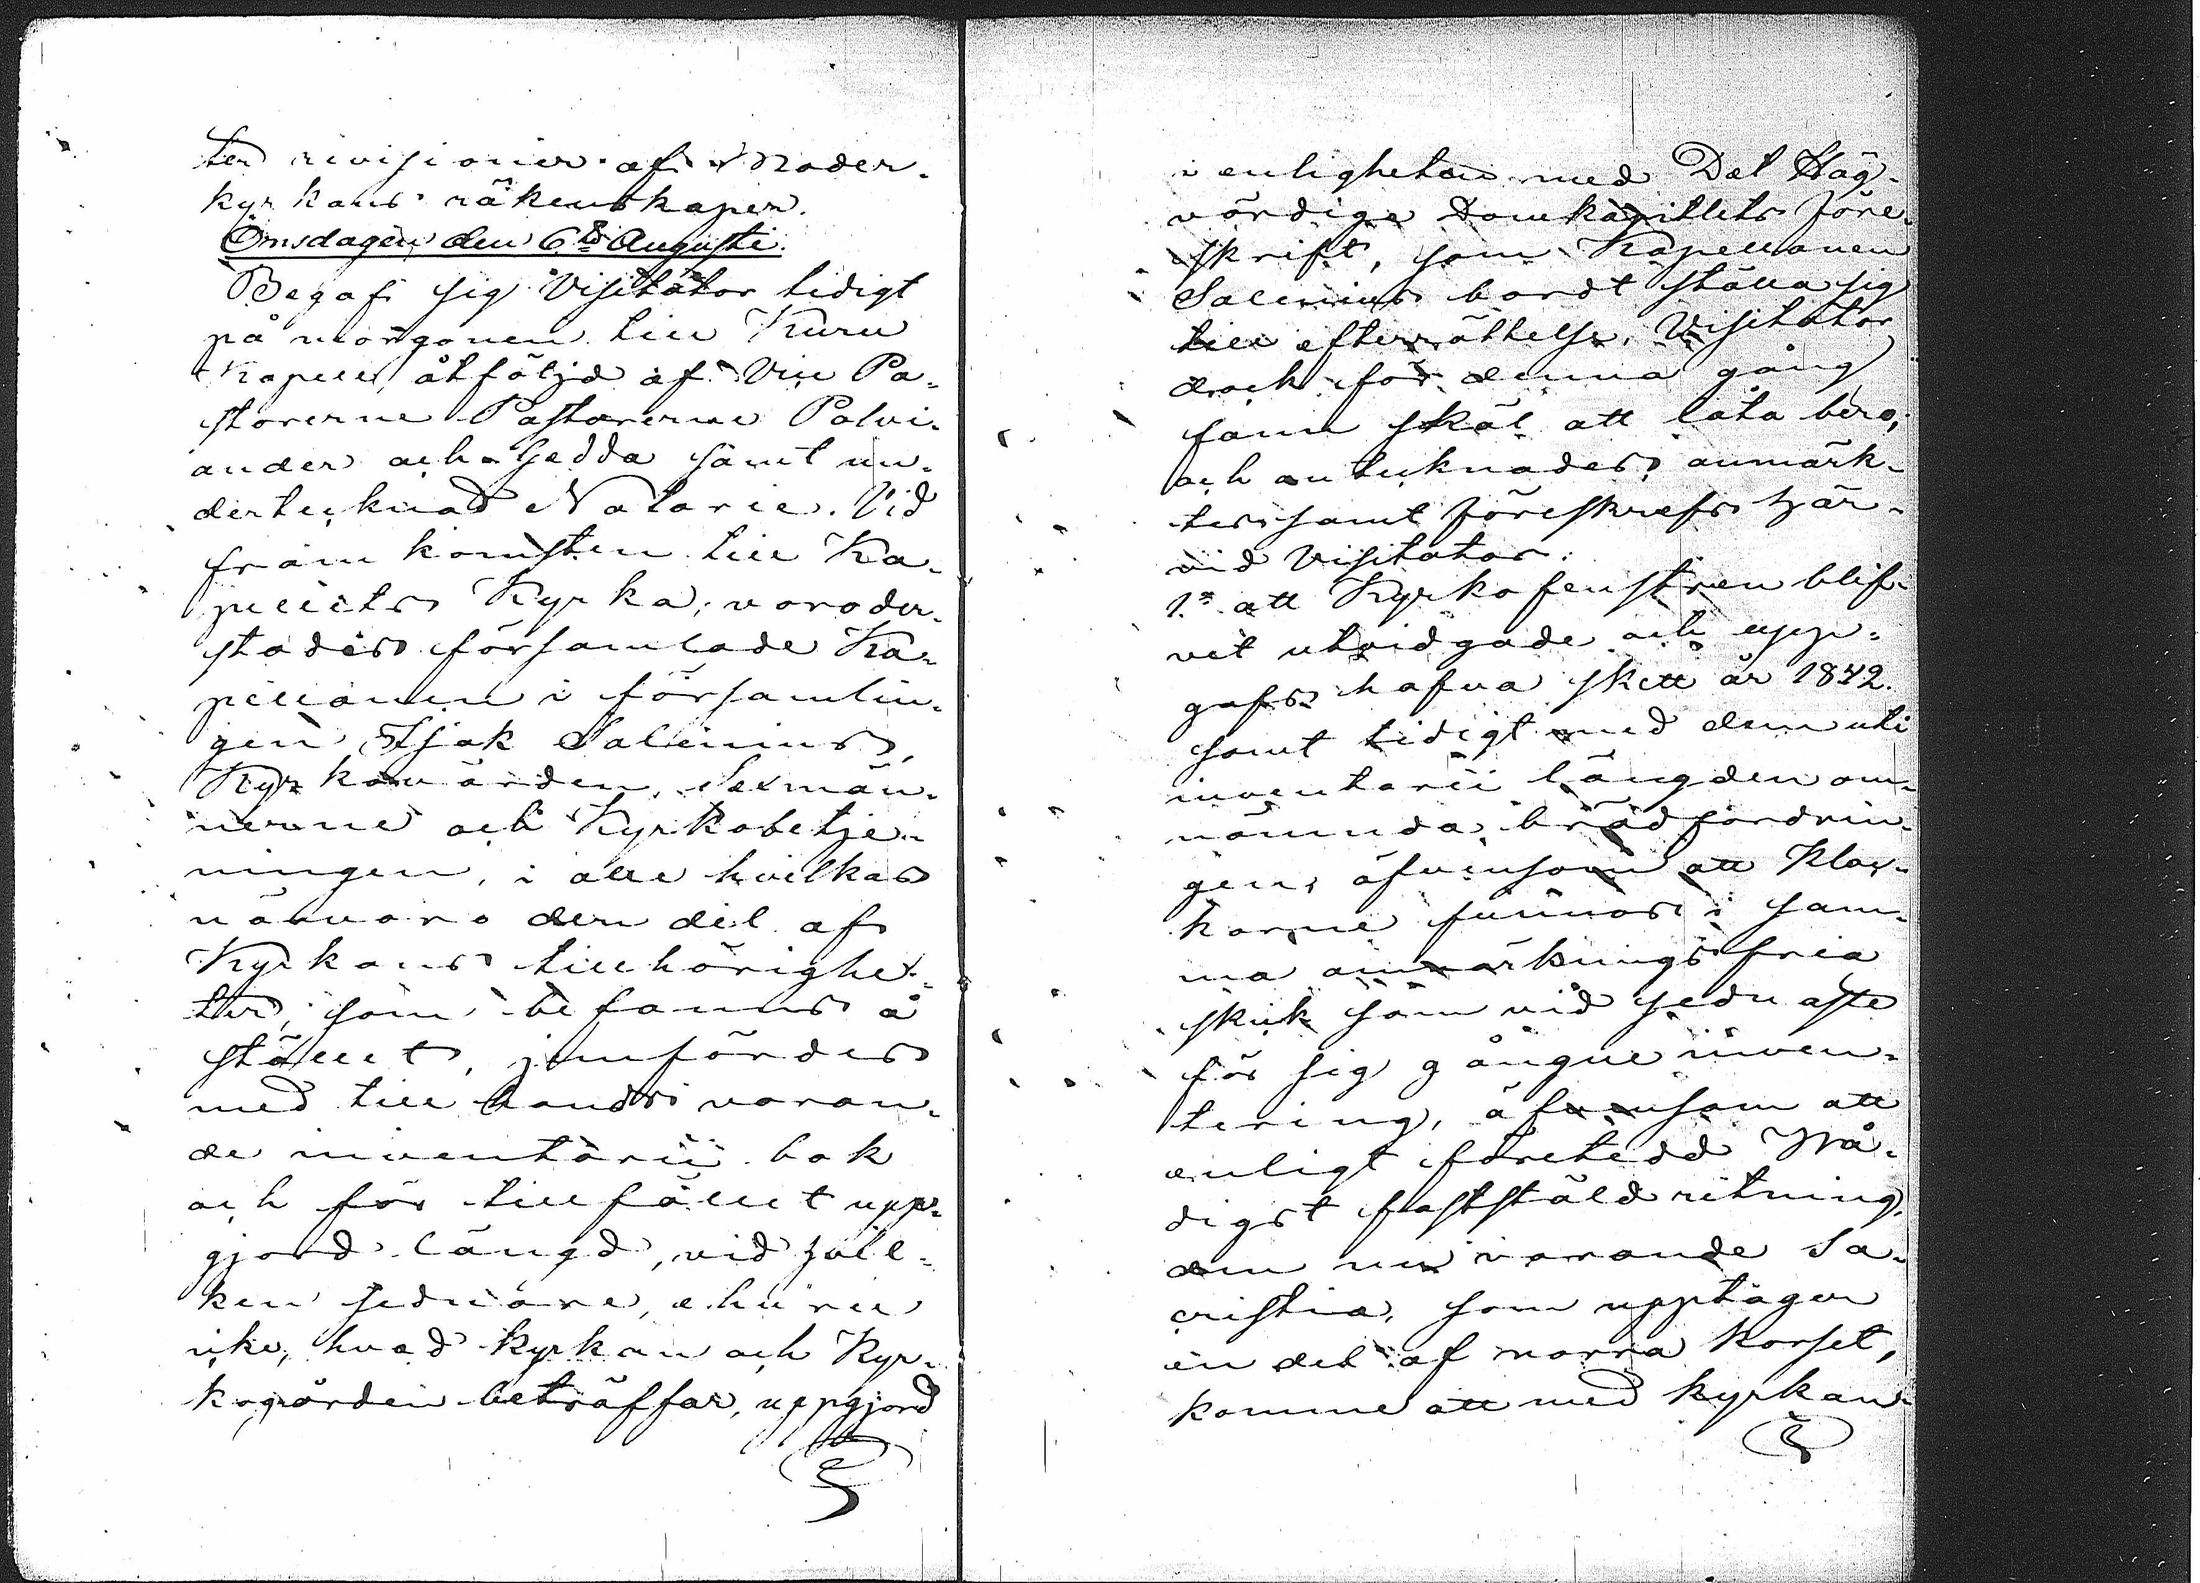 ter revisioner af Moder-
kyrkans räkenskaper.
Onsdagen den 6te Augusti.
Begaf sig Visitator tidigt
på morgonen till Kuru
Kapell, åtföljd af Vice Pa-
storerne Pastorerne Palvi-
ander och Gedda samt un-
dertecknad Notarie. Vid
framkomsten till Ka-
pellets Kyrka, voro der-
städes församlade Ka-
pellanen i församlin-
gen, Isak Salenius,
Kyrkovärden, Sexmän-
nerne och Kyrkobetje-
ningen, i alle hvilkas
närvaro den del af
Kyrkans tillhörighe-
ter, som befanns å
stället, jemfördes
med till hands varan-
de inventarii bok
och för tillfället upp-
gjord längd, vid hvil-
ken sednare, ehuru
icke, hvad kyrkan och Kyr-
kogården beträffar, uppgjord
i enligheten med Det Hög-
vördige Domkapitlets före-
skrift, som Kapellanen
Salenius bordt ställa sig
till efterrättelse, Visitator
dock för denna gång
fann skäl att låta bero,
och antecknades, anmärk-
tes samt föreskrefs här-
vid Visitator:
1o att Kyrkofenstren blif-
vit utvidgade och upp-
gafs hafva skett år 1842.
samt tidigt med den uti
inventarii längden om-
nämnda brädfordrin-
gen, äfvensom att Kloc-
korne funnos i sam-
ma anmärkningsfria
skick som vid sednaste
för sig gångne inven-
tering, äfvensom att
enligt företedd Nå-
digst fastställd ritning,
den nu varande Sa-
cristia, som upptager
en del af norra korset,
komme att med kyrkan